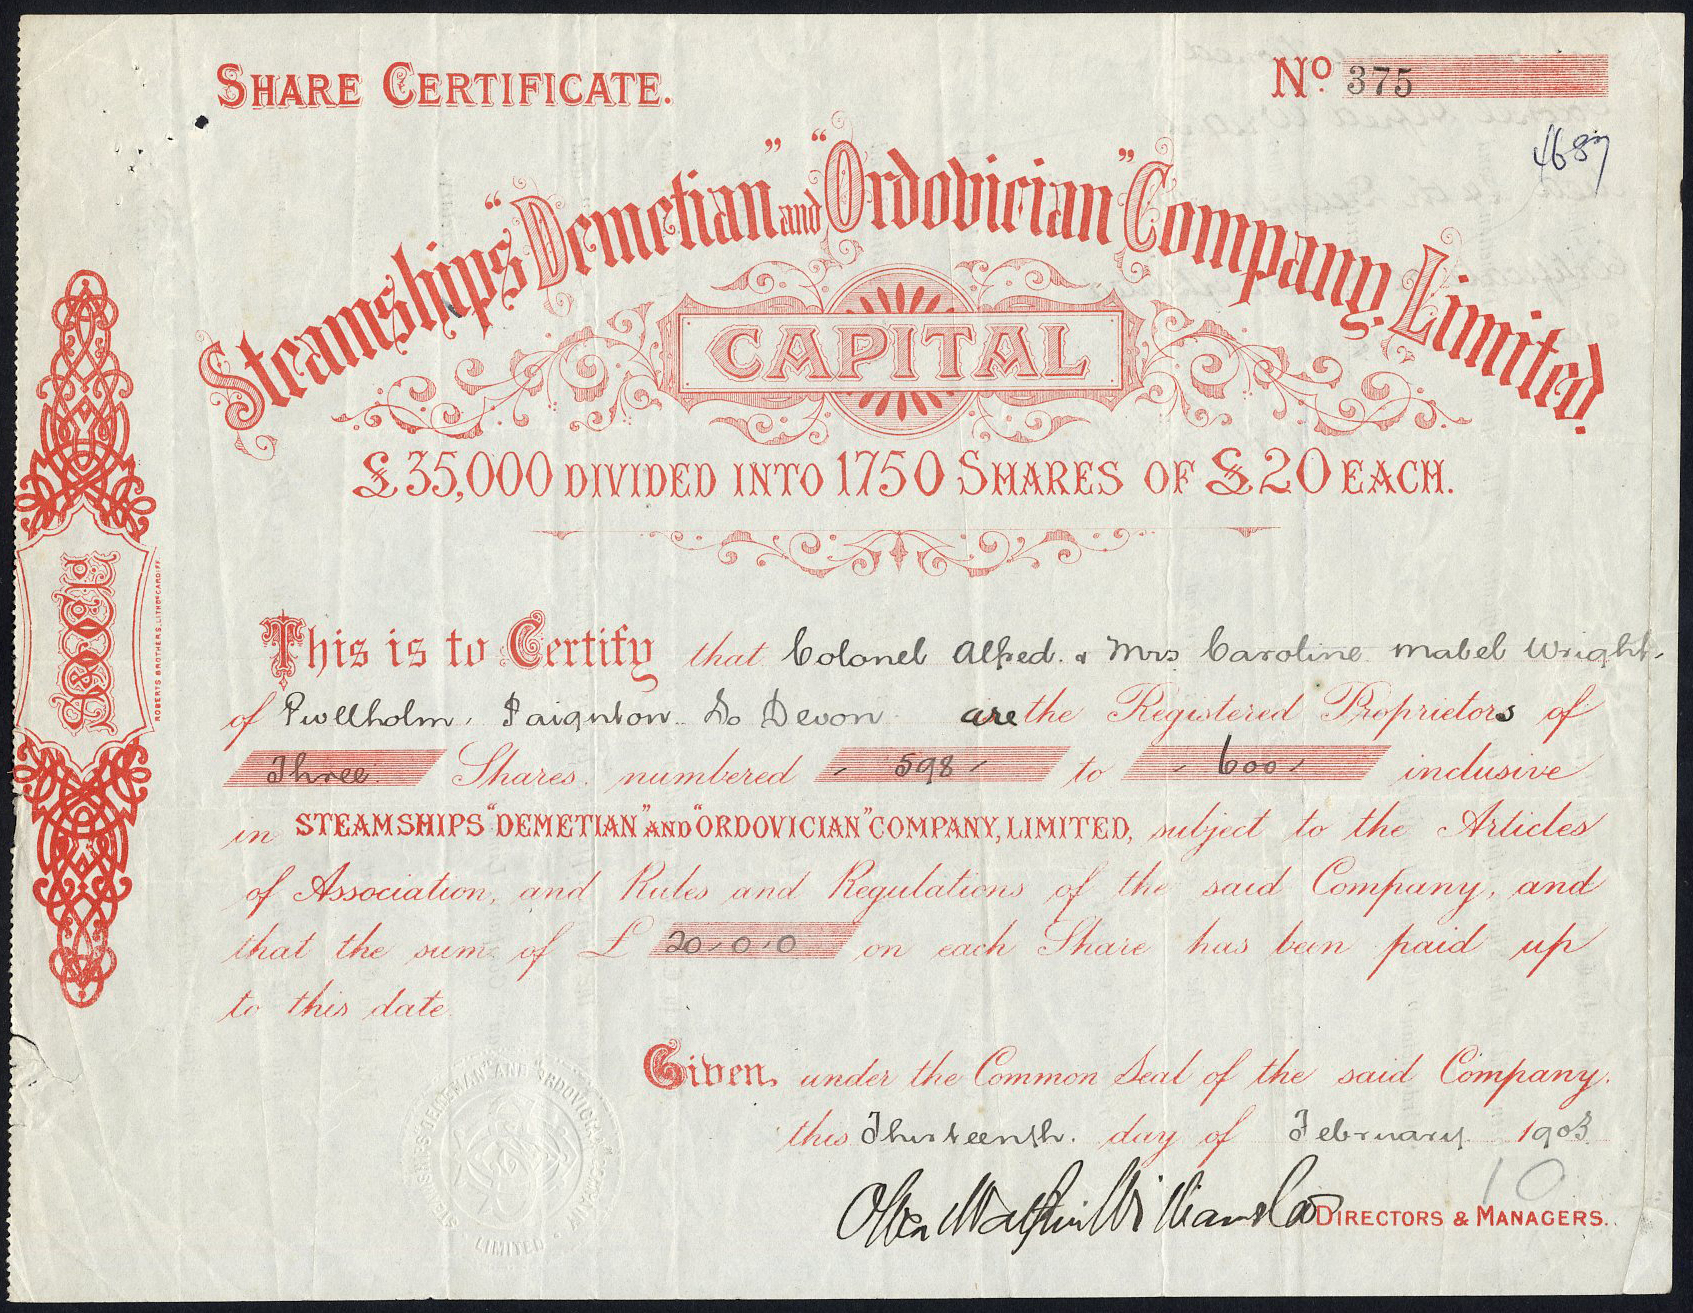 SHARE CERTIFICATE.
No 375
4687
Steamships "Demetian" and "Ordovician" Company, Limited.
CAPITAL
£35,000 DIVIDED INTO 1750 SHARES OF £20 EACH.
This is to Certify that Colonel Alfred & Mrs Caroline Mabel Wright,
of Pwellholm, Paignton. So Devon are the Registered Proprietors of
Three Shares numbered 598 to 600 inclusive
in STEAMSHIPS "DEMETIAN" AND "ORDOVICIAN" COMPANY, LIMITED, subject to the Articles
of Association, and Rules and Regulations of the said Company, and
that the sum of £ 20,0,0 on each Share has been paid up
to this date.
Given, under the Common Seal of the said Company.
this Thirteenth. day of February 1903
10
DIRECTORS & MANAGERS.
STEAMSHIPS "DEMETIAN" AND "ORDOVICIAN" COMPANY LIMITED
ROBERTS BROTHERS, LITHO. CARDIFF.